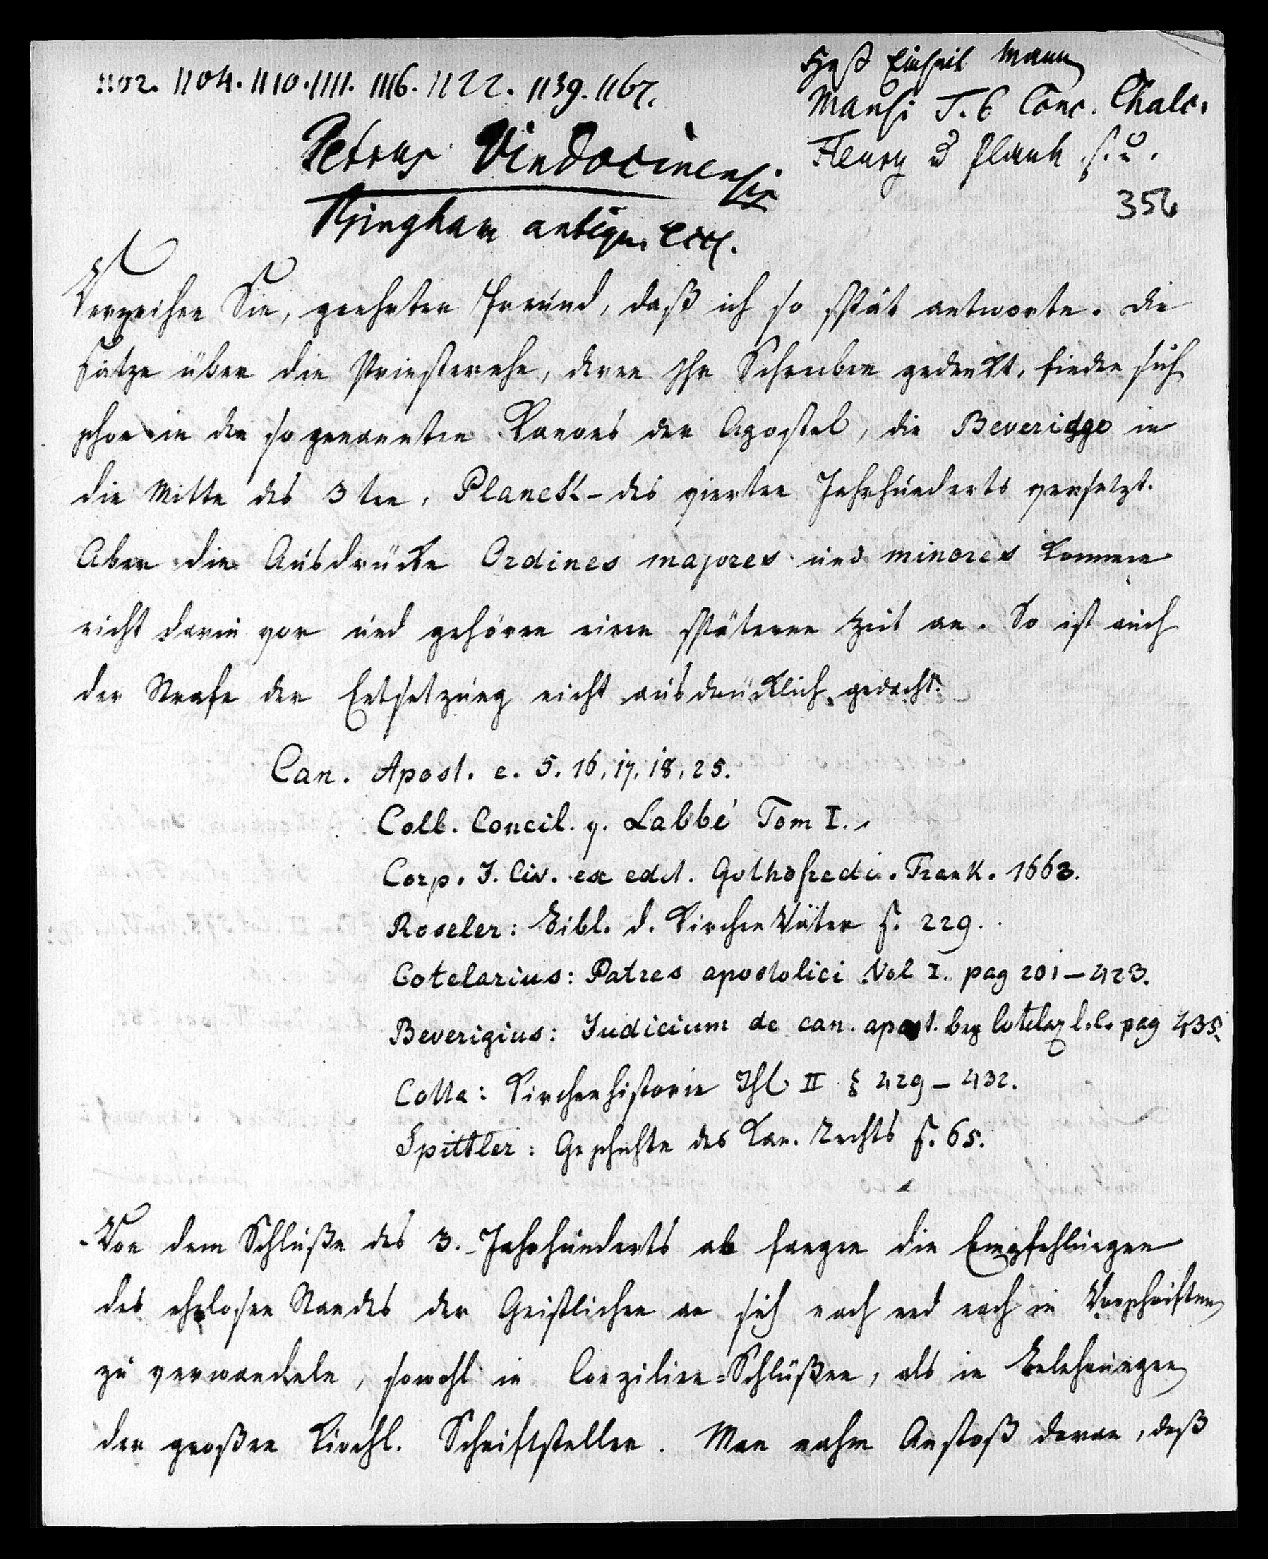 1102. 1104. 1110. 1111. 1116. 1122. 1139. 1167.
Mansi T. 6 Conc. Chalc.
Petrus Vindocinensis
Fleury 3 Plank s. 2.
356
Bingham antiqu. Eccl.
Verzeihen Sie, geehrter Freund, daß ich so spät antworte. Die
Sätze über die Priesterehe, deren Ihr Schreiben gedenkt, finden sich
schon in den sogenannten Kanons der Apostel, die Beveridge in
die Mitte des 3ten, Planck - des vierten Jahrhunderts versetzt.
Aber die Ausdrücke Ordines majores und minores kommen
nicht darin vor und gehören einer späteren Zeit an. So ist auch
der Strafe der Entsetzung nicht ausdrücklich gedacht.
Can. Apost. c. 5. 16, 17, 18, 25.
Coll. Concil. v. Labbé Tom I.
Corp. J. Civ. ex edit. Gothofredi. Frank. 1663.
Roseler: Bibl. d. Kirchen Väter S. 229.
Cotelarius: Patres apostolici Vol I. pag 201 - 423.
Beverigius: Judicium de can. apost. bey Cotelar l. c. pag 435.
Cotta: Kirchenhistorie Thl II § 429 - 432.
Spittler: Geschichte des Kan. Rechts S. 65.
Von dem Schluße des 3. Jahrhunderts ab fangen die Empfehlungen
des ehelosen Standes der Geistlichen an sich nach und nach in Vorschriften
zu verwandeln, sowohl in Conzilien=Schlüßen, als in Belehrungen
der großen kirchl. Schriftsteller. Man nahm Anstoß daran, daß